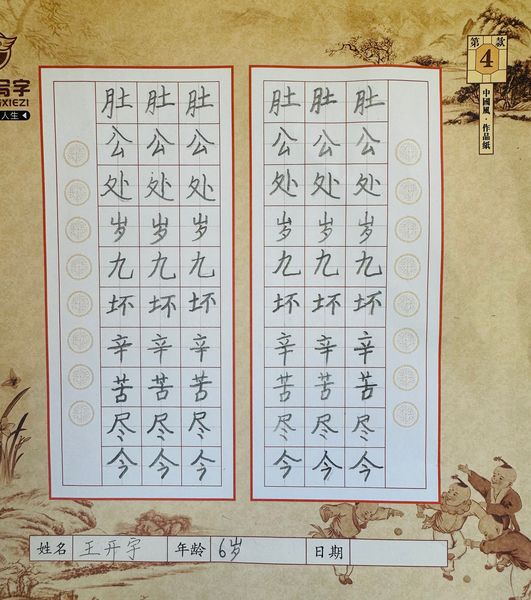 写字
XIEZI
人生
第4款
中國風·作品紙
肚肚肚 肚肚肚
公公公 公公公
处处处 处处处
岁岁岁 岁岁岁
九九九 九九九
坏坏坏 坏坏坏
辛辛辛 辛辛辛
苦苦苦 苦苦苦
尽尽尽 尽尽尽
今今今 今今今
姓名 王开宇 年龄 6岁 日期